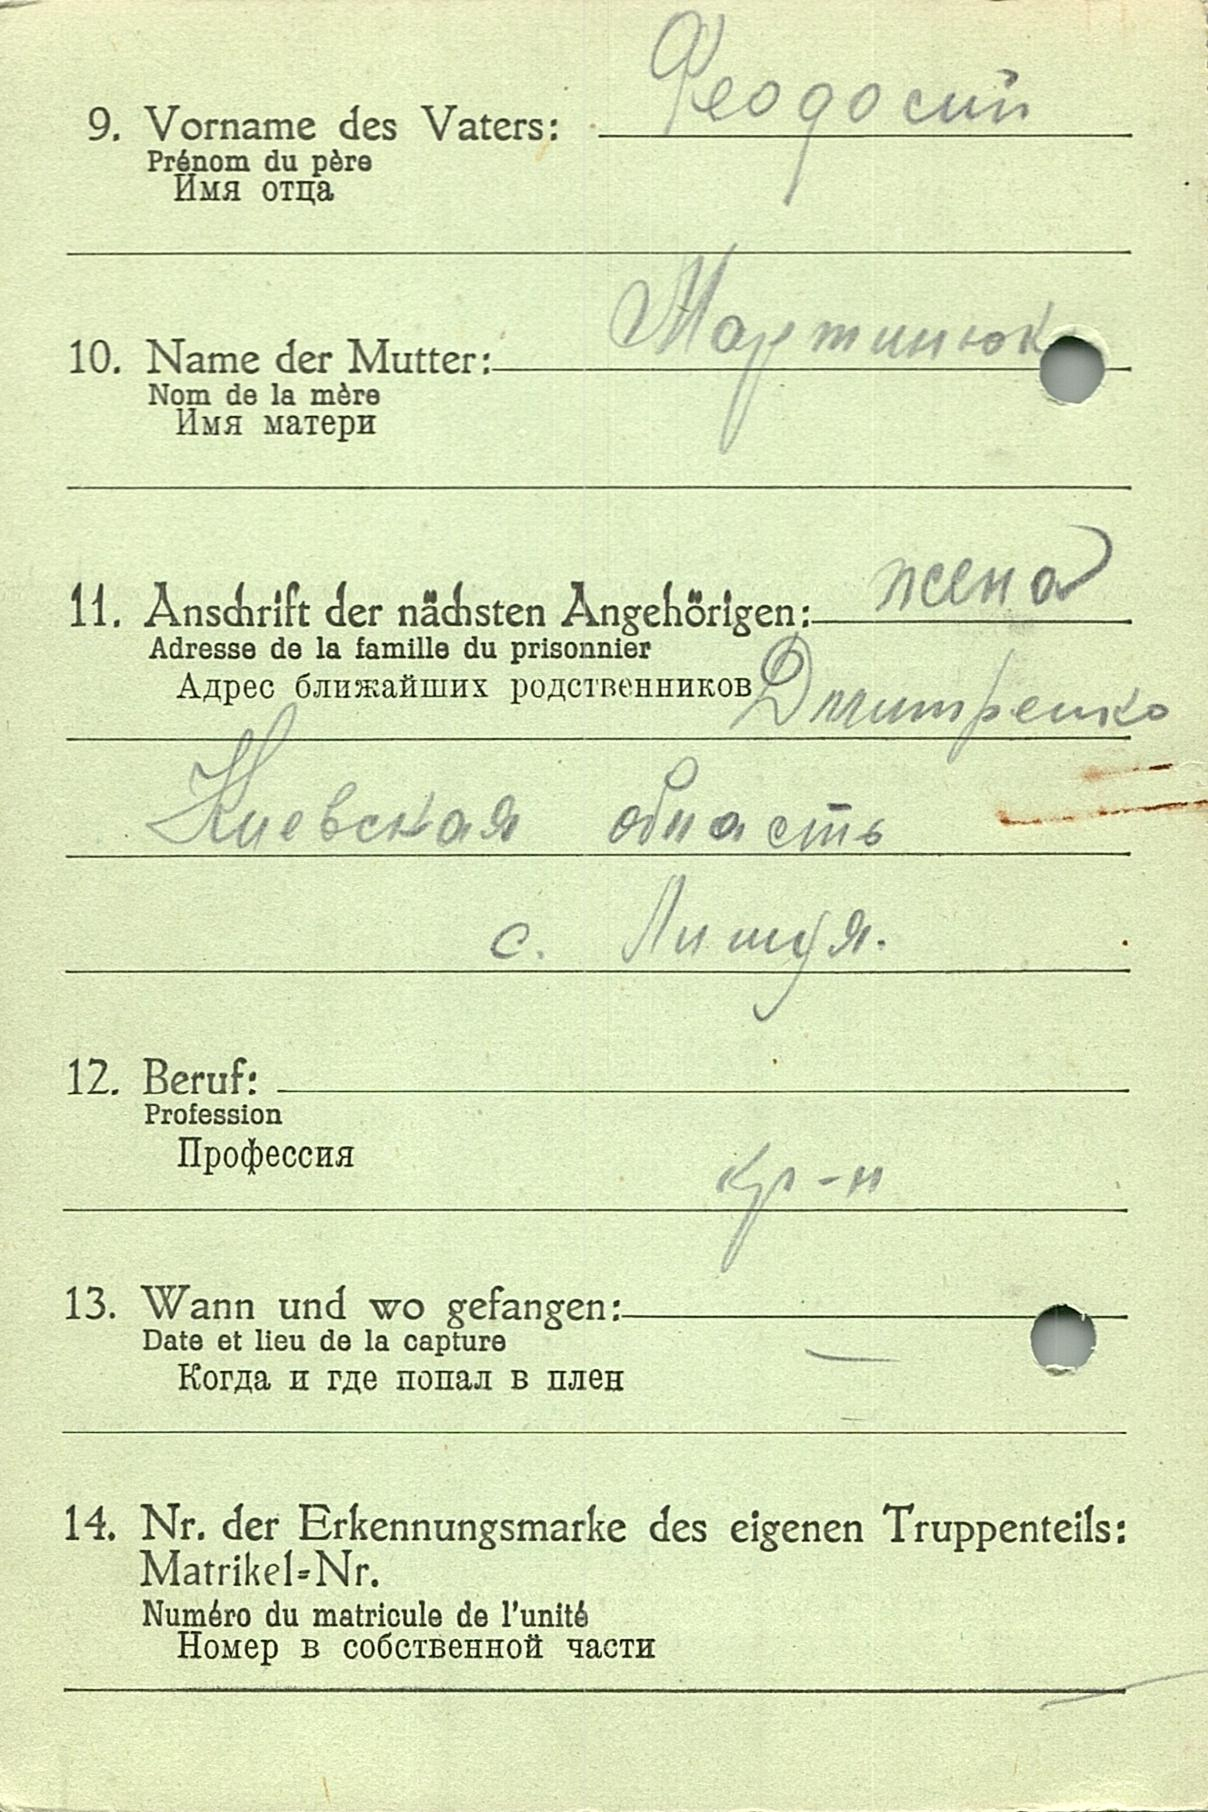 Феодосий
9. Vorname des Vaters:
Prénom du père
Имя отца
Мартинюк
10. Name der Mutter:
Nom de la mère
Имя матери
жена
11. Anschrift der nächsten Angehörigen:
Adresse de la famille du prisonnier
Адрес ближайших родственников
Дмитренко
Киевская область
с.
12. Beruf:
Profession
Профессия
кр-н
13. Wann und wo gefangen:
Date et lieu de la capture
Когда и где попал в плен
—
14. Nr. der Erkennungsmarke des eigenen Truppenteils:
Matrikel-Nr.
Numéro du matricule de l'unité
Номер в собственной части